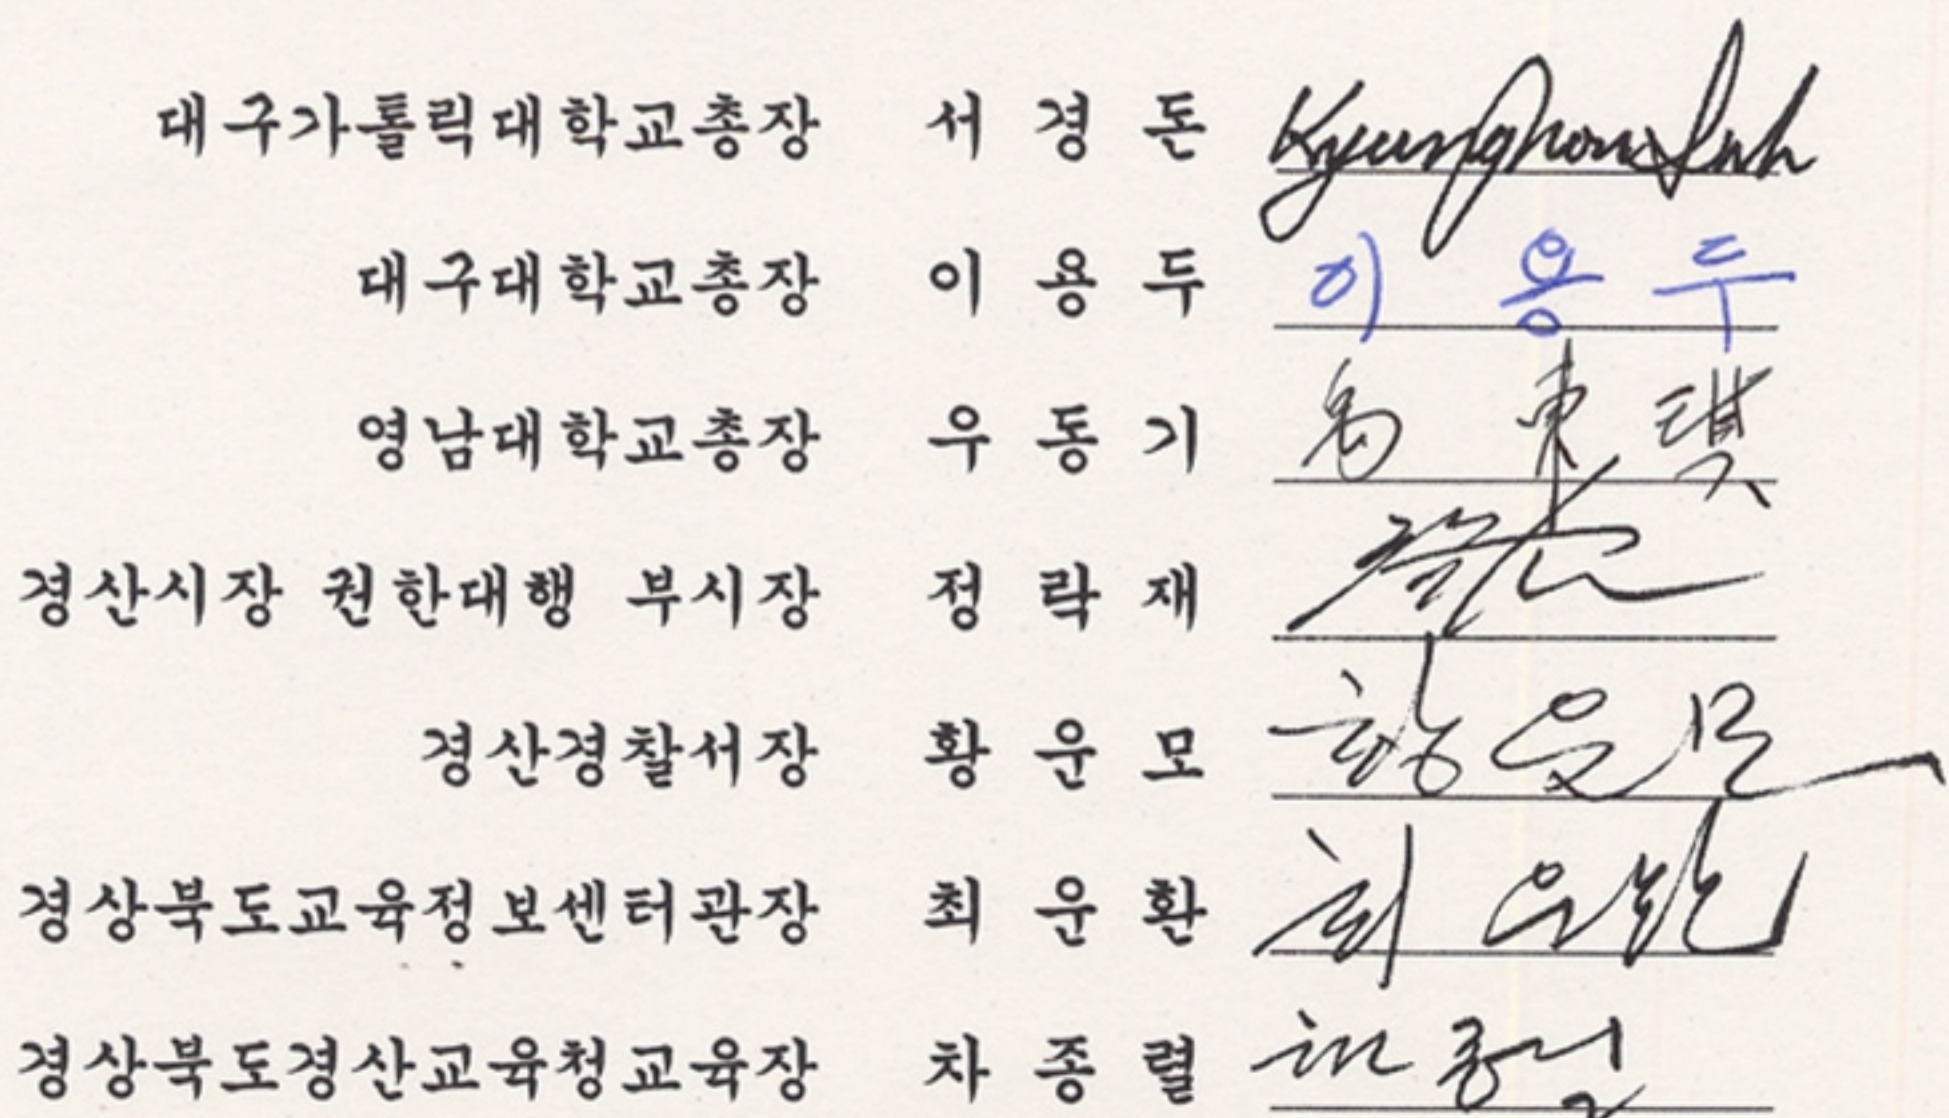 대구가톨릭대학교총장 서 경 돈 Kyunghon Suh
대구대학교총장 이 용 두 이 용 두
영남대학교총장 우 동 기 禹 東 琪
경산시장 권한대행 부시장 정 락 재
경산경찰서장 황 운 모 황 운 모
경상북도교육정보센터관장 최 운 환 최 운 환
경상북도경산교육청교육장 차 종 렬